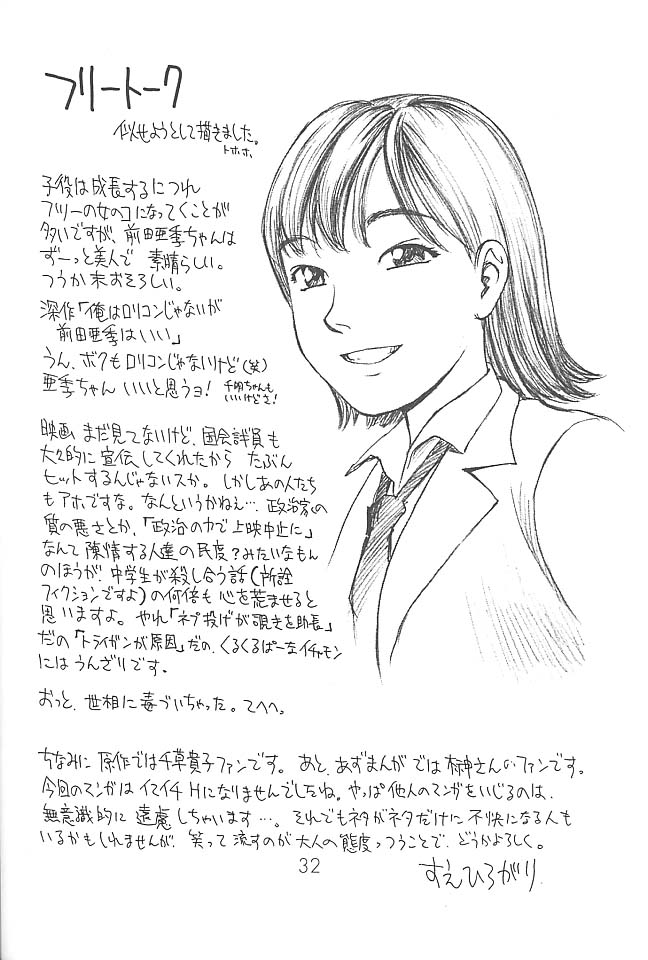 フリートーク
似せようとして描きました。
トホホ、
子役は成長するにつれ
フツーの女のコになってくことが
多いですが、前田亜季ちゃんは
ずーっと美人で 素晴らしい。
つうか末おそろしい。
深作「俺はロリコンじゃないが
前田亜季はいい」
うん、ボクもロリコンじゃないけど(笑)
亜季ちゃん いいと思うョ!
千明ちゃんも
いいけどさ!
映画 まだ見てないけど、国会議員も
大々的に 宣伝してくれたから たぶん
ヒットするんじゃないスか。しかしあの人たち
もアホですな。なんというかねぇ…政治家の
質の悪さとか、「政治の力で上映中止に」
なんて 陳情する人達の民度?みたいなもん
のほうが、中学生が殺し合う話(所詮
フィクションですよ)の何倍も 心を荒ませると
思いますよ。やれ「ネプ投げが覗きを助長」
だの「トライガンが原因」だの、くるくるぱーなイチャモン
にはうんざりです。
おっと、世相に毒づいちゃった。てへへ。
ちなみに 原作では千草貴子ファンです。あと、あずまんがでは榊さんのファンです。
今回のマンガは イマイチ Hになりませんでしたね。やっぱ他人のマンガをいじるのは、
無意識的に 遠慮しちゃいます…。それでもネタがネタだけに 不快になる人も
いるかもしれませんが、笑って 流すのが 大人の態度っつうことで、どうかよろしく。
32
すえひろがり